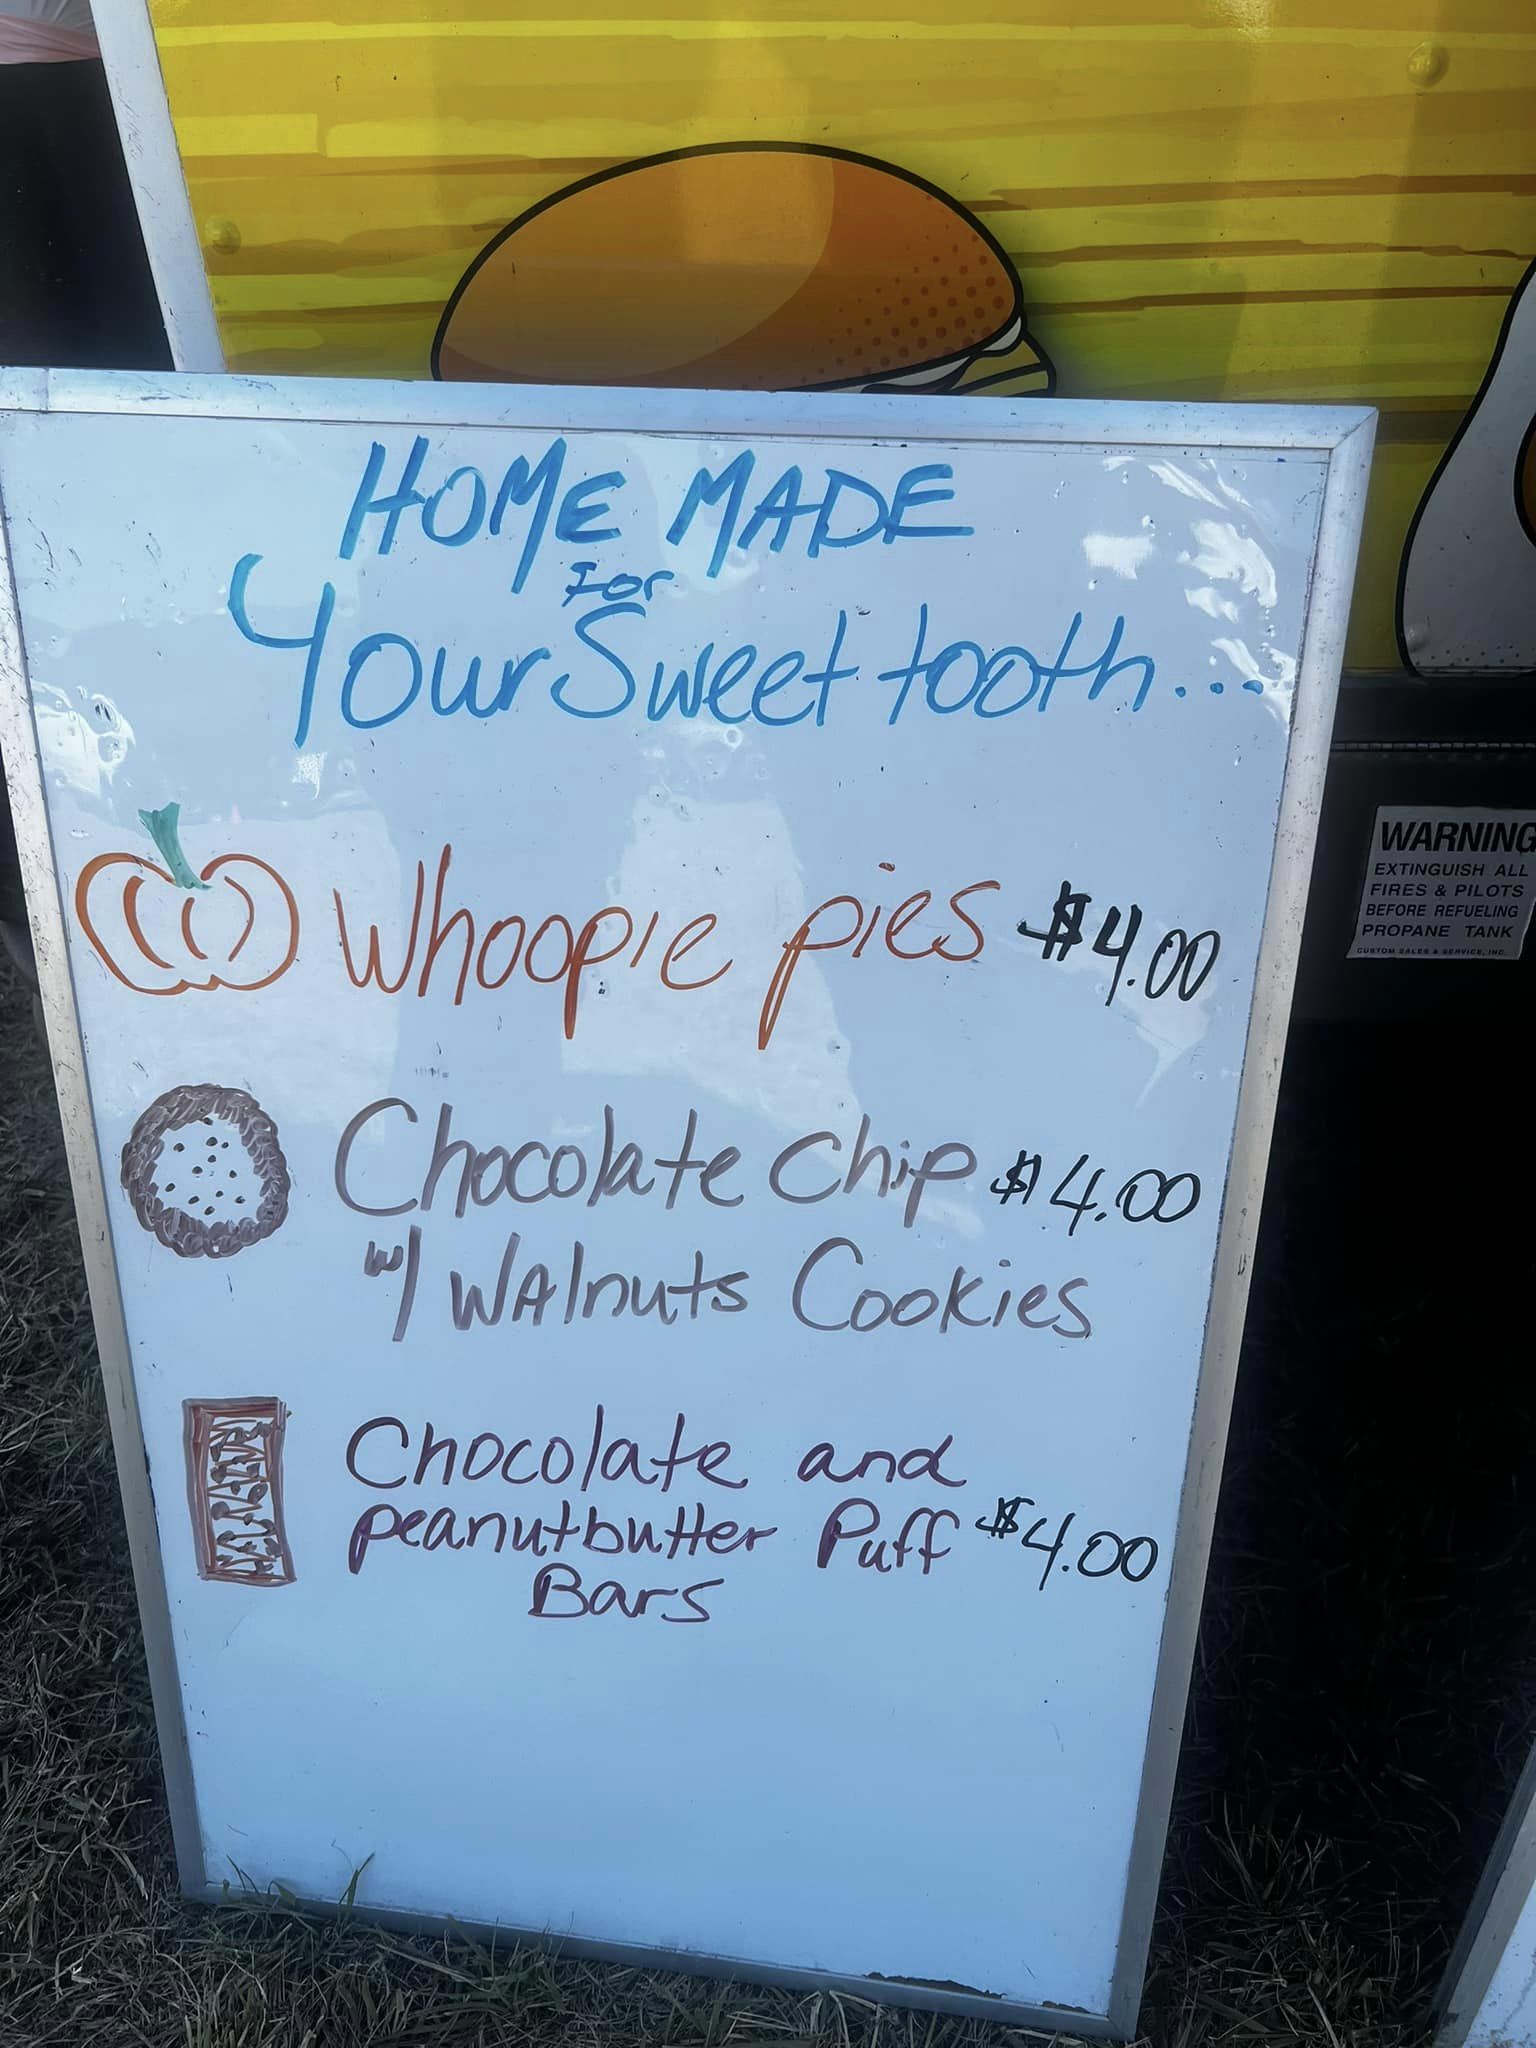 HOME MADE
For
Your Sweet tooth...
Whoopie pies $4.00
Chocolate chip $4.00
w/ WAlnuts Cookies
Chocolate and
peanutbutter Puff $4.00
Bars
WARNING
EXTINGUISH ALL
FIRES & PILOTS
BEFORE REFUELING
PROPANE TANK
CUSTOM SALES & SERVICE, INC.